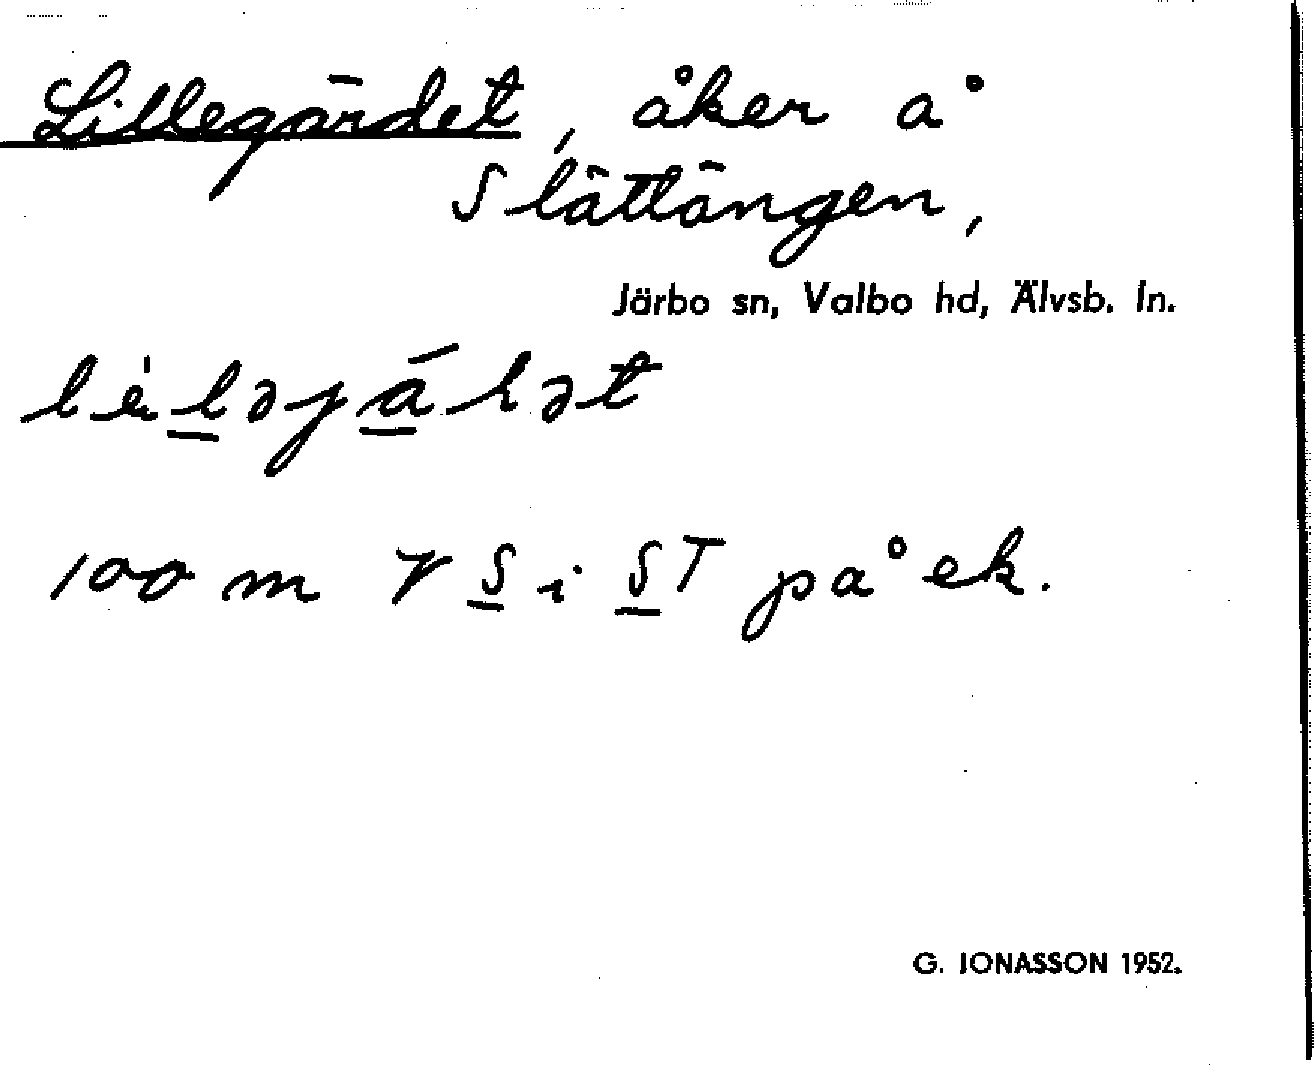 Lillegärdet, åker å
Slättängen,
Järbo sn, Valbo hd, Älvsb. ln.
100 m V S i ST på ek.
G. JONASSON 1952.